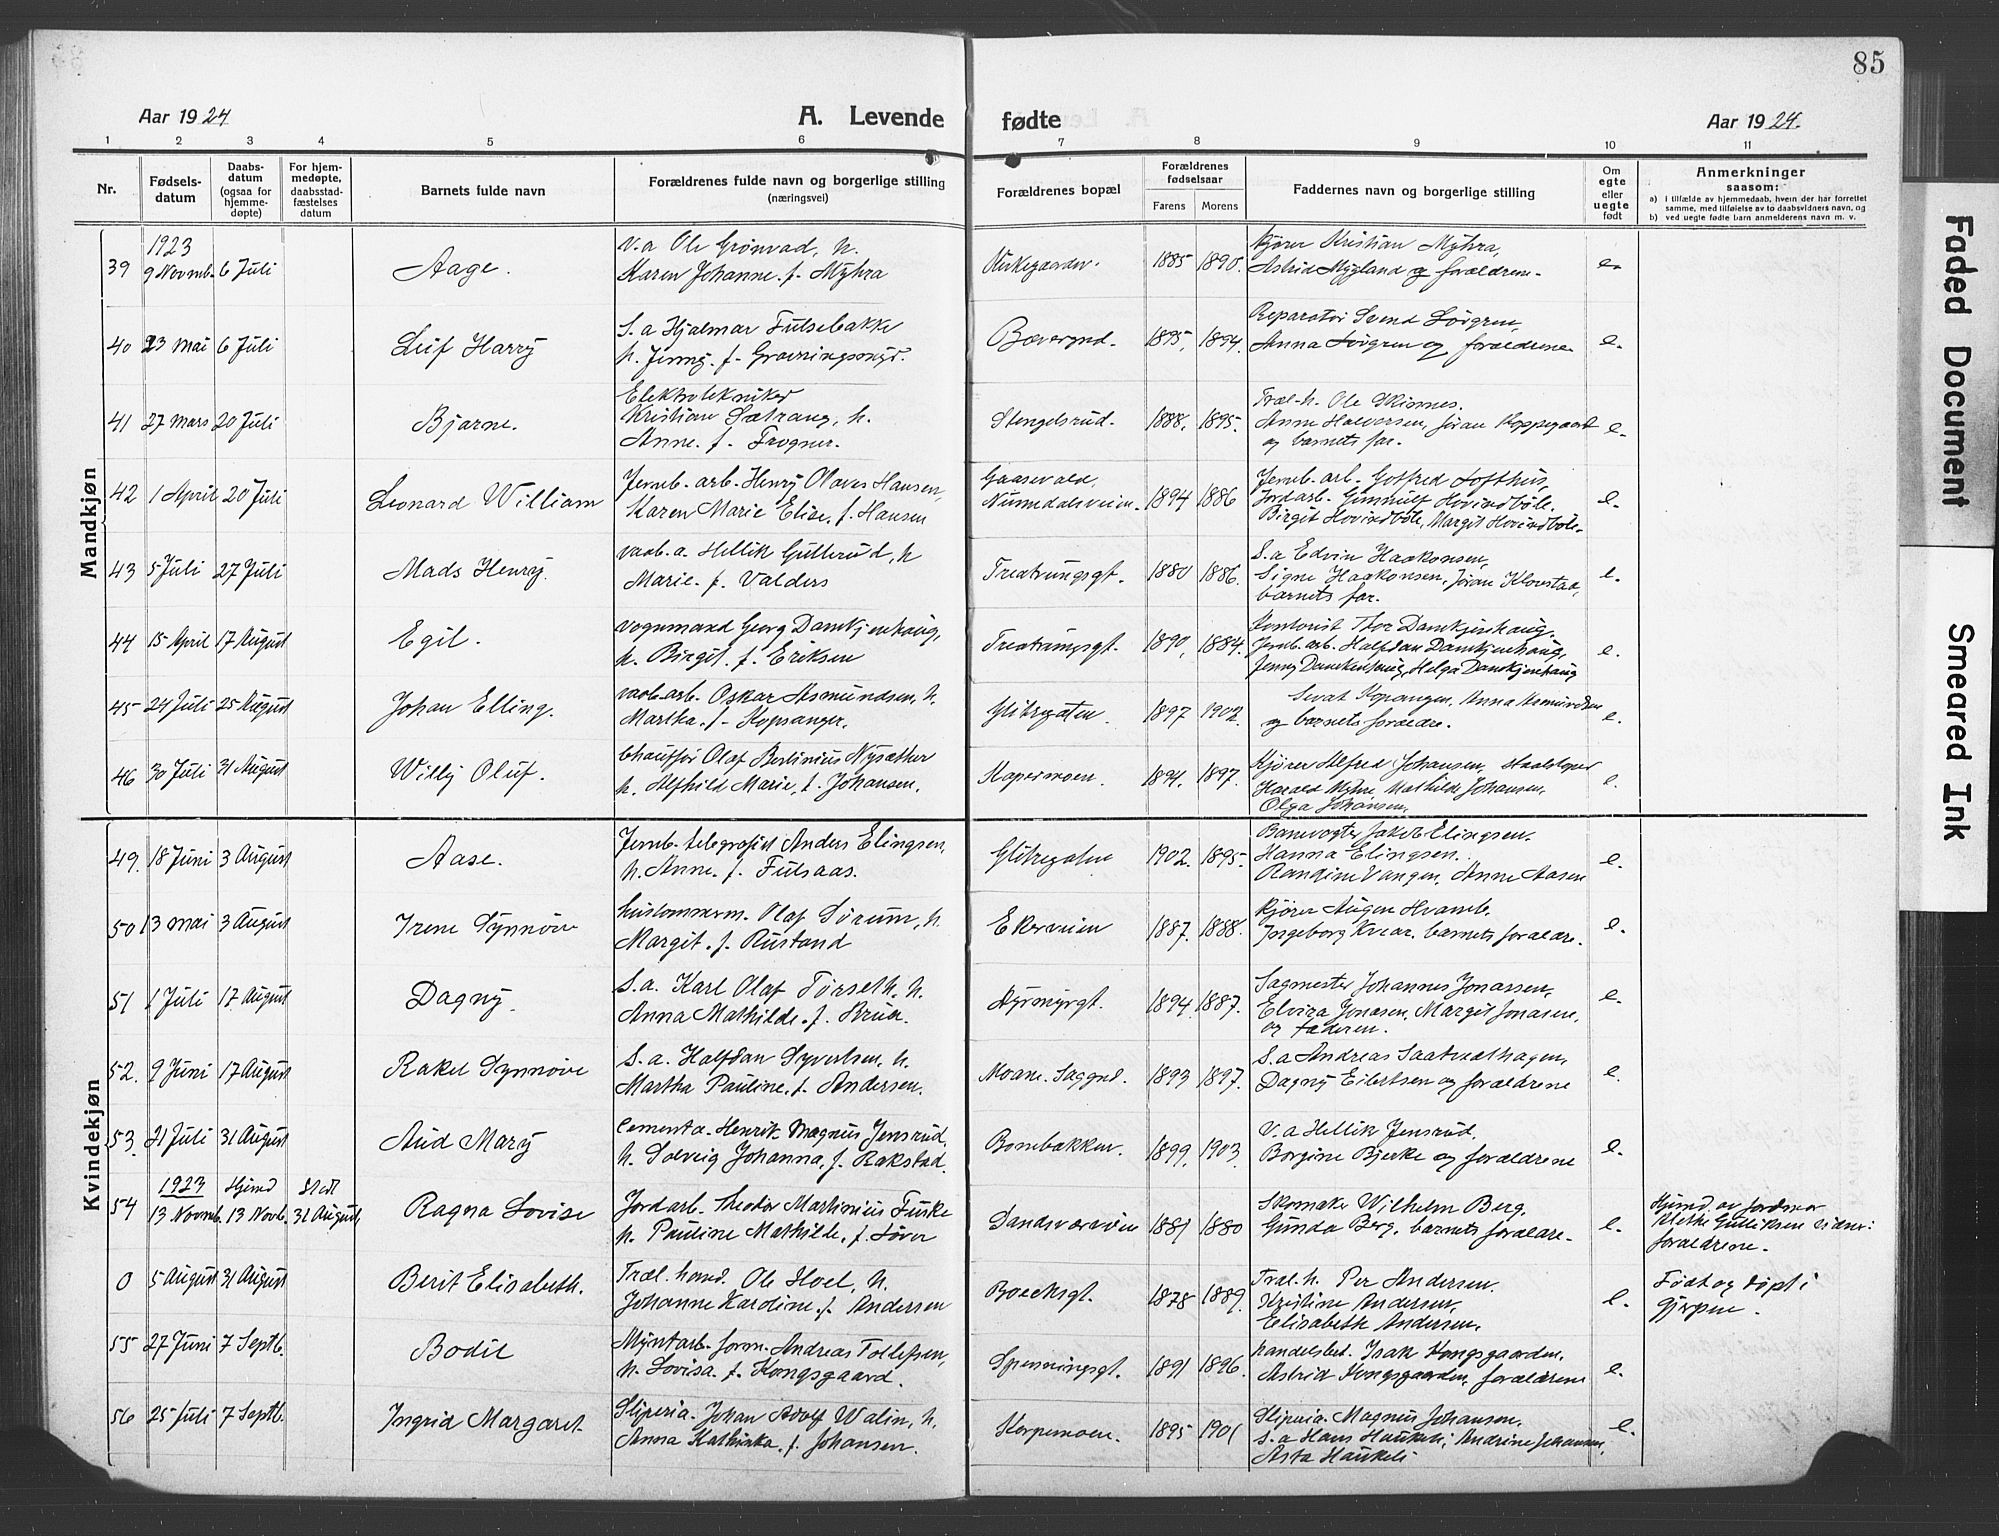 85
Aar 1924
A. Levende fødte
Aar 1924.
1 2 3 4 5 6 7 8 9 10 11
Nr.
Fødselsdatum
Daabsdatum (ogsaa for hjemmedøpte)
For hjemmedøpte, daabsstadfæstelses datum
Barnets fulde navn
Forældrenes fulde navn og borgerlige stilling (næringsvei)
Forældrenes bopæl
Forældrenes fødselsaar
Farens Morens
Faddernes navn og borgerlige stilling
Om egte eller uegte født
Anmerkninger
saasom:
a) I tilfælde av hjemmedaab, hvem der har forrettet samme, med tilføielse av to daabsvidners navn, og
b) ved uegte fødte barn anmelderens navn m. v.
Mandkjøn
1923
39 9 Novmb. 6 Juli Aage.
V.a Ole Grønvad, h.
Karen Johanne. f. Myhra
1885 1890.
Kjører Kristian Myhra,
Astrid Mygland og forældrene. e.
40 23 Mai 6 Juli Leif Harry
S.a Hjalmar Fulsebakke
h. Jenny. f.
Bævergrd. 1895. 1894.
Reparatør Svend Løvgren,
Anna Løvgren og forældrene e.
41 27 Mars 20 Juli Bjarne.
Elektrotekniker
Kristian Sætrang, h.
Anne. f. Frogner.
Stengelsrud. 1888. 1895.
Træl.h. Ole Skinnes.
Anne Halvorsen, Jøran Koppegaard
og barnets far. e.
42 1 April 20 Juli Leonard William
Jernb. arb. Henry Olaves Hansen,
Karen Marie Elise, f. Hansen
Gaasevald,
Numedalsveien. 1894 1886
Jernb. arb. Gotfred Lofthus,
Jordarb. Gunnulf Hovindbøle.
Birgit Hovindbøle, Margit Hovindbøle. e.
43 5 Juli 27 Juli Mads Henry.
vaab.a. Hellik Gulterud, h
Marie. f. Valders
1880 1886.
S.a Edvin Haakonsen,
Signe Haakonsen, Jøran Klovstad,
barnets far. e.
44 15 April 17 August Egil.
vognmand Georg Damkjenhaug,
h. Birgit. f. Eriksen
1890, 1884.
Kontorist Thor Damkjenhaug,
Jernb. arb. Halfdan Damkjenhaug,
Jenny Damkjenhaug, Helga Damkjenhaug e.
45 24 Juli 25 August Johan Elling.
vaab.arb. Oskar Asmundsen, h.
Martha. f. Kopsanger.
Glitregaten. 1897 1902.
Sevat Kopangen, Anna Asmundsen
og barnets forældre. e.
46 30 Juli 31 August Willy Oluf.
Chauffør Olaf Berlinius Nysæther
h. Alfhild Marie, f. Johansen.
1894. 1897.
Kjører Alfred Johansen,
Harald Myhre Mathilde Johansen,
Olga Johansen. e.
Kvindekjøn
49. 18 Juni 3 August Aase.
Jernb. telegrafist Anders Elingsen,
h. Anne. f. Fulsaas.
Glitregaten 1902. 1895.
Banevogter Jakob Elingsen.
Hanna Elingsen.
Randine Vangen, Anne Aasen e.
50 13 Mai 3 August Irene Synnøve
Olaf Sørum, h.
Margit. f. Rustand
Ekerveien 1887. 1888.
Kjører Augen Hvamb.
Ingeborg barnets forældre. e.
51 1 Juli 17 August Dagny.
S.a. Karl Olaf Torseth. h.
Anna Mathilde. f. Brua.
Hyrmyrgt. 1894. 1887.
Sagmester Johannes Jonassen,
Elvira Jonasen, Margit Jonasen,
og faderen. e.
52. 9 Juni 17 August Rakel Synnøve
S.a. Halfdan Syvertsen, h.
Martha Pauline. f. Andersen.
Moane. Saggrd. 1893 1897.
S.a Andreas Saatvedthagen,
Dagny Eilertsen og forældrene e.
53. 21 Juli 31 August Aud Mary
Cement a. Henrik Magnus Jensrud,
h. Solveig Johanna, f. Rakstad.
Bonebakken. 1899. 1903.
V.a Hellik Jensrud.
Borgine Bjerke og forældrene e.
1923 Hjemd Stadf
54 13 Novmb. 13 Novb. 31 August Ragna Lovise
Jordarb. Theodor Martinius Funke
h. Pauline Mathilde, f. Løver
Sandsværveien 1881 1880
Skomaker Wilhelm Berg,
Gunda Berg, barnets forældre. e.
Hjemd. av Jordmor
Alethe Gulliksen vidner:
forældrene.
0 5 August 31 August Berit Elisabeth.
Træl.hand. Ole Hoel, h.
Johanne Karoline. f. Andersen
Boecksgt. 1878 1889.
Træl.h. Per Andersen.
Kristine Andersen,
Elisabeth Andersen. e.
Født og døpt i
Gjerpen.
55 27 Juni 7 Septb. Bodil
Myntarb. form. Andreas Tollefsen,
h. Lovisa. f. Kongsgaard.
Spenningsgt. 1891 1896.
Handelsbet. Isak Kongsgaarden,
Astrid Kongsgaarden, forældrene e.
56 25 Juli 7 Septb. Ingrid Margaret
Sliperia. Johan Adolf Walin, h.
Anna Kathinka. f. Johansen.
1895 1901
Sliperia. Magnus Johansen.
S.a Hans Haukeli, Andrine Johansen,
Asta Haukeli e.
Faded Document
Smeared Ink